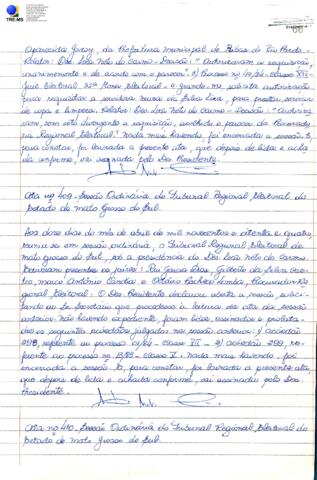 TRE-MS
66
Aparecida Godoy, da Prefeitura Municipal de Ribas do Rio Pardo-
Relator: Des. Leão Neto do Carmo - Decisão: "Autorizaram a requisição,
unanimemente e de acordo com o parecer. 2) Processo nº 04/84 - classe XII-
Juiz Eleitoral 32ª Zona Eleitoral - solicita autorização
para requisitar a servidora Neusa da Silva Lima, para prestar serviços
de copa e limpeza. Relator: Des. Leão Neto do Carmo - Decisão: "
com, sem voto divergente a requisição, contrário o parecer da Procuradoria
Regional Eleitoral." Nada mais havendo, foi encerrada a sessão. E,
para constar, foi lavrada a presente ata, que depois de lida e acha-
da conforme, vai assinada pelo Des. Presidente.
Ata nº 409 - Sessão Ordinária do Tribunal Regional Eleitoral do
Estado de Mato Grosso do Sul.
Aos doze dias do mês de abril de mil novecentos e oitenta e quatro,
reuniu-se em sessão ordinária, o Tribunal Regional Eleitoral de
Mato Grosso do Sul, sob a presidência do Des. Leão Neto do Carmo.
Estiveram presentes os juízes: Rui Garcia Dias, Gilberto da Silva Cas-
tro, Marco Antônio Cândia e Otávio Pacheco Lomba, Procurador Re-
gional Eleitoral. O Des. Presidente declarou aberta a sessão, solici-
tando ao Sr. Secretário que procedesse à leitura da ata da sessão
anterior. Não havendo expediente, foram lidos, assinados e publica-
dos os seguintes acórdãos julgados na sessão anterior: 1) acórdão
298, referente ao processo 01/84 - classe VII - 2) acórdão 299, re-
ferente ao processo nº 13/83 - classe V. Nada mais havendo, foi
encerrada a sessão. E, para constar, foi lavrada a presente ata
que depois de lida e achada conforme, vai assinada pelo Des.
Presidente.
Ata nº 410 - Sessão Ordinária do Tribunal Regional Eleitoral do
Estado de Mato Grosso do Sul.